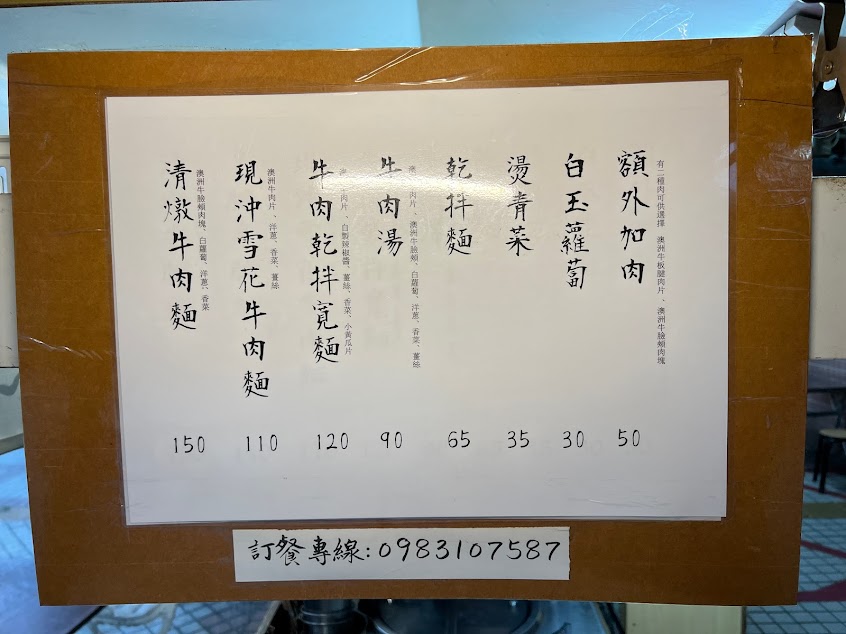 清燉牛肉麵
澳洲牛臉頰肉塊、白蘿蔔、洋蔥、香菜
150
現沖雪花牛肉麵
澳洲牛肉片、洋蔥、香菜、薑絲
110
牛肉乾拌寬麵
肉片、自製辣椒醬、薑絲、香菜、小黃瓜片
120
牛肉湯
肉片、澳洲牛臉頰、白蘿蔔、洋蔥、香菜、薑絲
90
乾拌麵
65
燙青菜
35
白玉蘿蔔
30
額外加肉
有二種肉可供選擇 澳洲牛板腱肉片、澳洲牛臉頰肉塊
50
訂餐專線:0983107587